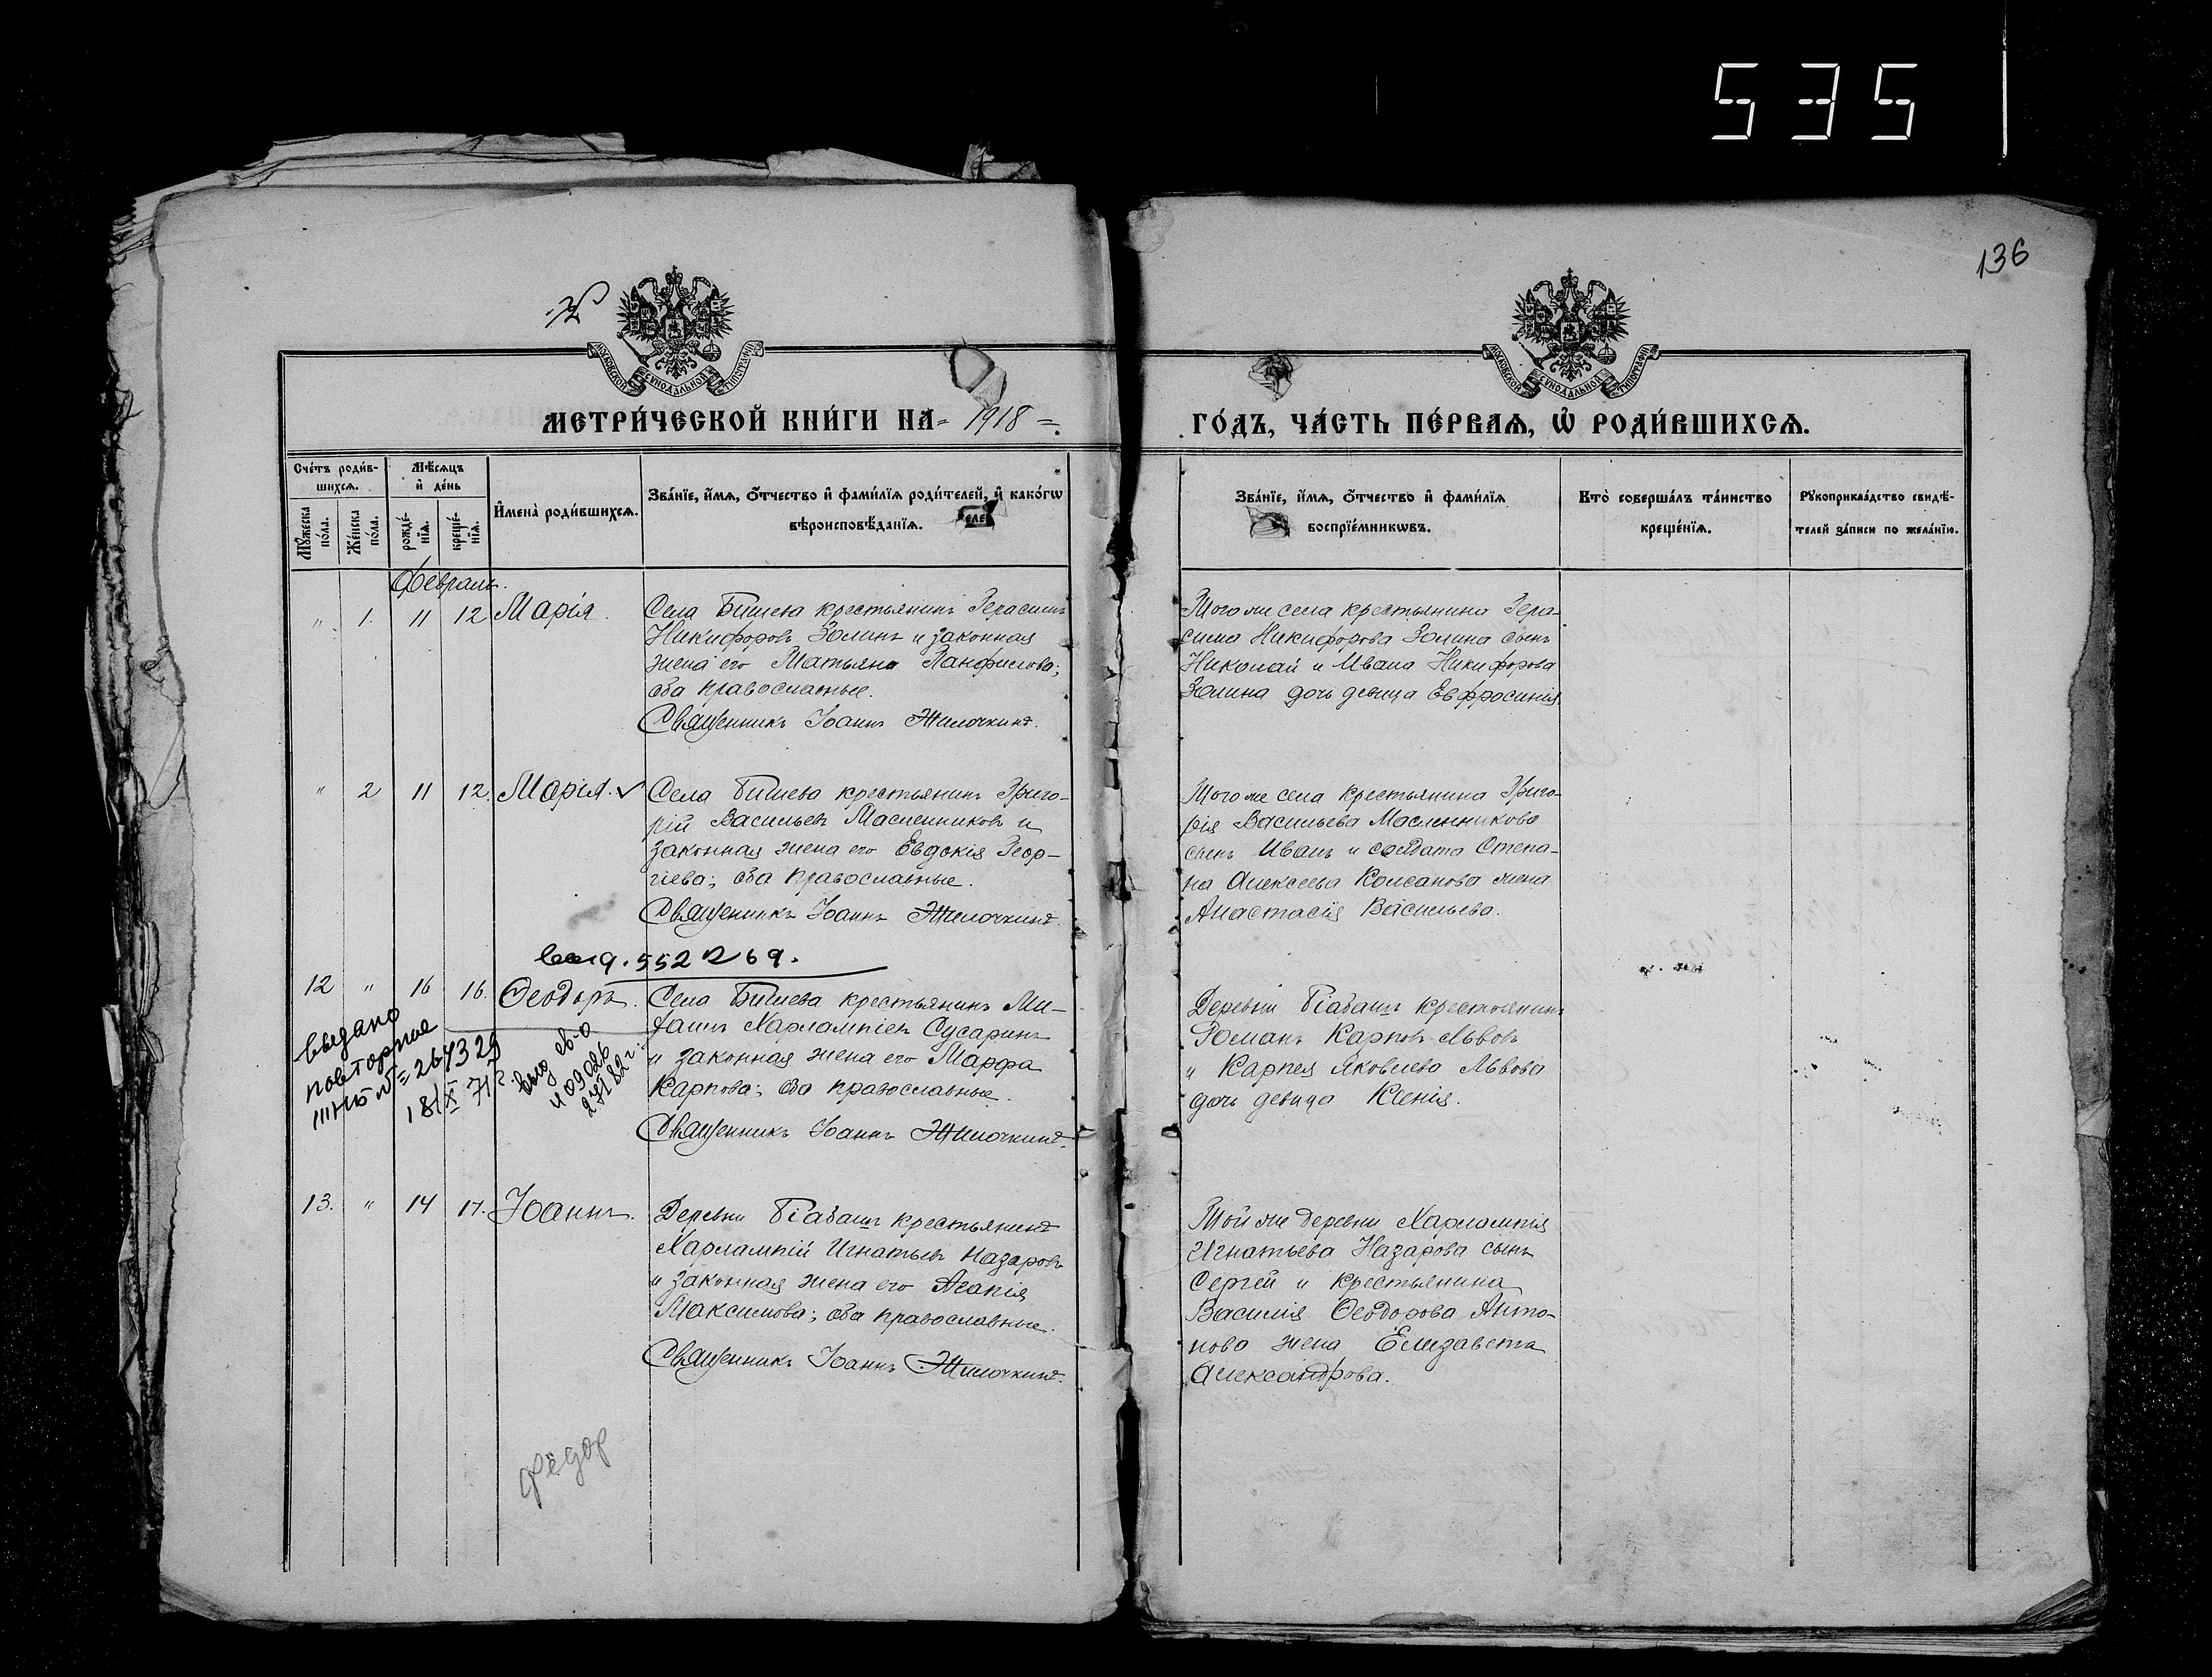 535
136
МОСКОВСКОЙ СѴНОДАЛЬНОЙ ТИПОГРАФІИ
МОСКОВСКОЙ СѴНОДАЛЬНОЙ ТИПОГРАФІИ
МЕТРИ́ЧЕСКОЙ КНИ́ГИ НА 1918
ГО́ДЪ, ЧА́СТЬ ПЕ́РВАѦ, Ѡ҆ РОДИ́ВШИХСѦ.
Сче́тъ роди́в-
шихсѧ.
Мꙋ́жеска по́ла.
Же́нска по́ла.
Мѣ́сѧцъ и҆ де́нь
рожде́-нїѧ.
креще́-нїѧ.
И҆мена̀ роди́вшихсѧ.
Зва́нїе, и҆́мѧ, ѻ҆́тчество и҆ фами́лїѧ роди́телей, и҆ како́гѡ
вѣроисповѣ́данїѧ.
Зва́нїе, и҆́мѧ, ѻ҆́тчество и҆ фами́лїѧ
воспрїе́мникѡвъ.
Кто̀ соверша́лъ та́инство
креще́нїѧ.
Рꙋкоприкла́дство свидѣ́-
телей за́писи по жела́нїю.
Февраль.
" 1. 11 12 Марія.
Села Бишева крестьянинъ Герасимъ
Никифоровъ Золинъ и законная
жена его Татьяна Панфилова;
оба православные.
Священникъ Іоаннъ Жилочкинъ.
Того же села крестьянина Гера-
сима Никифорова Золина сынъ
Николай и Ивана Никифорова
Золина дочь девица Евфросинія.
" 2 11 12. Марія. ✓
Села Бишева крестьянинъ Григо-
рій Васильевъ Масленниковъ и
законная жена его Евдокія Геор-
гіева; оба православные.
Священникъ Іоаннъ Жилочкинъ.
Того же села крестьянина Григо-
рія Васильева Масленникова
сынъ Иванъ и солдата Степа-
на Алексеева Колсанова жена
Анастасія Васильева.
выд. 552 269.
12 " 16 16. Ѳеодоръ.
Села Бишева крестьянинъ Ми-
хаилъ Харлампіевъ Сусаринъ
и законная жена его Марфа
Карпова; оба православные.
Священникъ Іоаннъ Жилочкинъ.
Деревни Біабашъ крестьянинъ
Романъ Карповъ Львовъ
и Карпея Яковлева Львова
дочь девица Ксенія.
выдано
повторное
18/X 71г.
выд св-о
27 I 82г.
13. " 14 17. Іоаннъ.
Деревни Біабашъ крестьянинъ
Харлампій Игнатьевъ Назаровъ
и законная жена его Агапія
Максимова; оба православные.
Священникъ Іоаннъ Жилочкинъ.
Той же деревни Харлампія
Игнатьева Назарова сынъ
Сергей и крестьянина
Василія Ѳеодорова Анто-
нова жена Елизавета
Александрова.
Фёдор